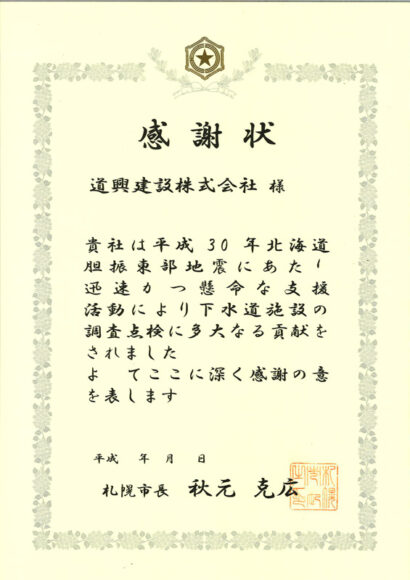 感謝状
道興建設株式会社 様
貴社は平成30年北海道
胆振東部地震にあたり
迅速かつ懸命な支援
活動により下水道施設の
調査点検に多大なる貢献を
されました
よ てここに深く感謝の意
を表します
平成 年 月 日
札幌市長 秋元 克広